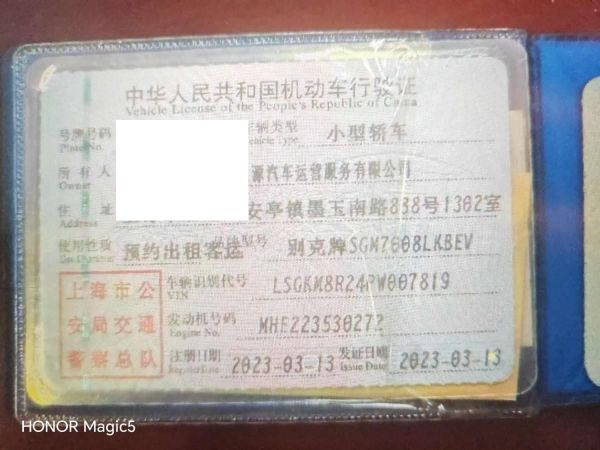 中华人民共和国机动车行驶证
Vehicle License of the People's Republic of China
号牌号码 车辆类型 小型轿车
Plate No. Vehicle Type
所有人 源汽车运营服务有限公司
Owner
住址 安亭镇墨玉南路888号1302室
Address
使用性质 预约出租客运 品牌型号 别克牌SGM7008LKBEV
Use Character
上海市公 车辆识别代号 LSGKM8R24PW007819
VIN
安局交通 发动机号码 MHE223530272
Engine No.
警察总队 注册日期 2023-03-13 发证日期 2023-03-13
Register Date Issue Date
HONOR Magic5